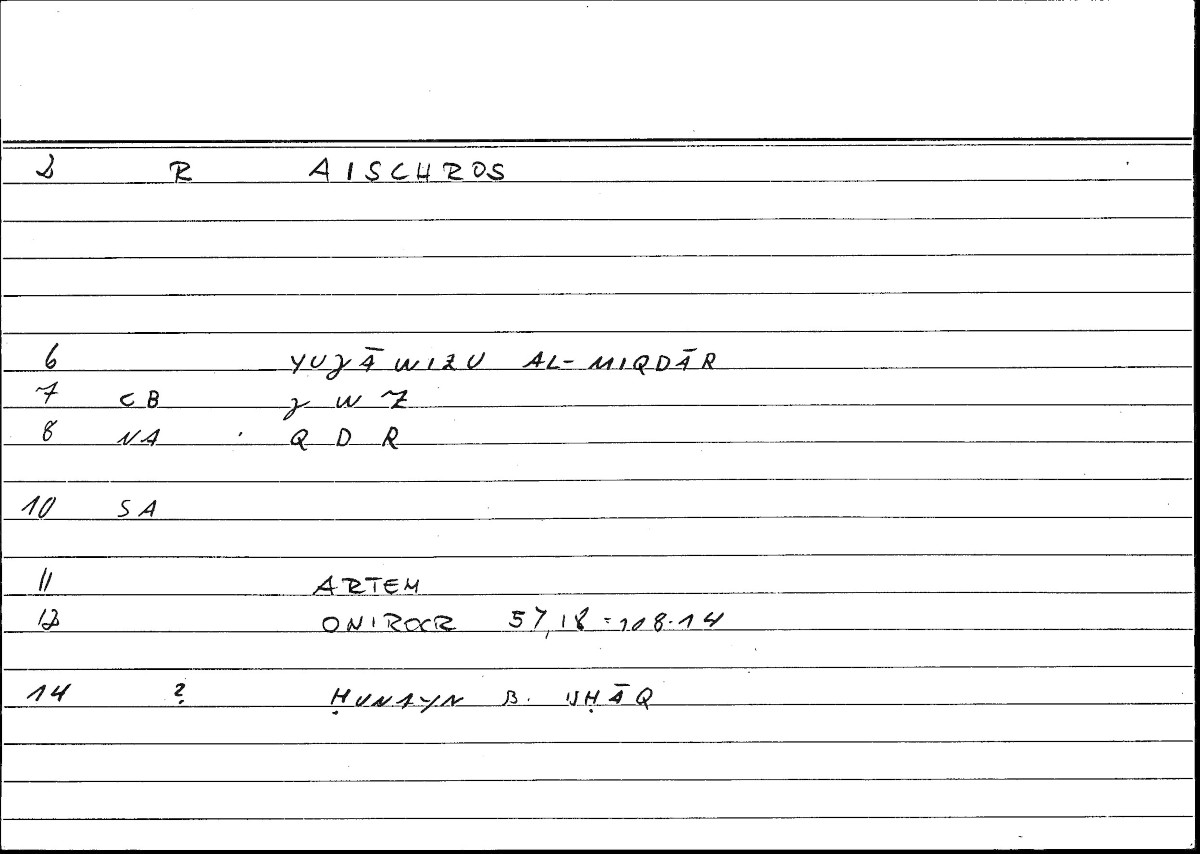 2 R AISCHROS
6 YUǦĀWIZU AL-MIQDĀR
7 CB Ǧ W Z
8 NA Q D R
10 SA
11 ARTEM
12 ONIROCR 57,18 = 108.14
14 ? ḤUNAYN B. ISḤĀQ